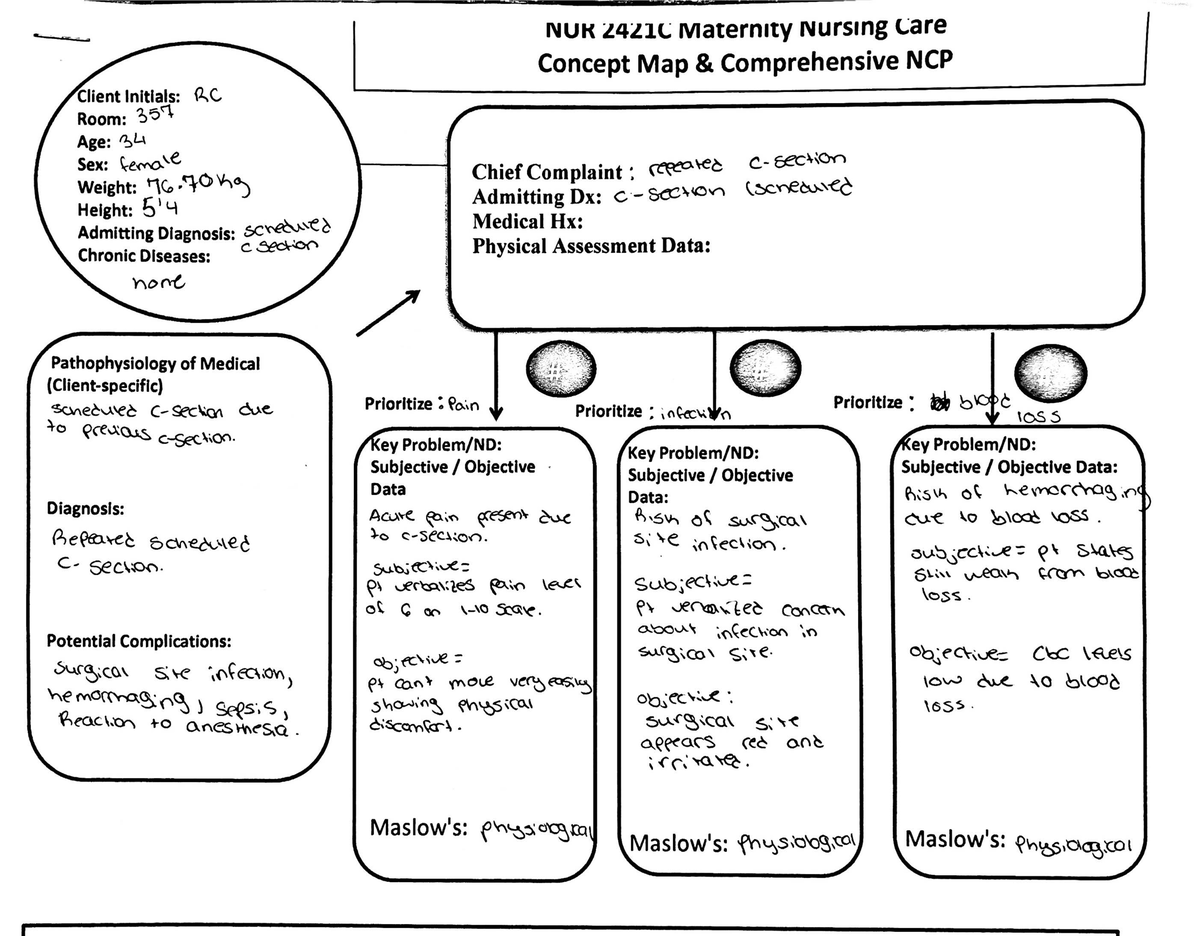 NUR 2421C Maternity Nursing Care
Concept Map & Comprehensive NCP
Client Initials: RC
Room: 357
Age: 34
Sex: female
Weight: 76.70 kg
Height: 5'4
Admitting Diagnosis: scheduled
c section
Chronic Diseases:
none
Chief Complaint : repeated c-section
Admitting Dx: c-section (scheduled
Medical Hx:
Physical Assessment Data:
Pathophysiology of Medical
(Client-specific)
scheduled c-section due
to previous c-section.
Diagnosis:
Repeated scheduled
c-section.
Potential Complications:
surgical site infection,
hemorrhaging, sepsis,
Reaction to anesthesia.
#
Prioritize : Pain
Key Problem/ND:
Subjective / Objective
Data
Acute pain present due
to c-section.
subjective=
pt verbalizes pain level
of 6 on 1-10 scale.
objective=
pt can't move very easily
showing physical
discomfort.
Maslow's: physiological
#
Prioritize : infection
Key Problem/ND:
Subjective / Objective
Data:
Risk of surgical
site infection.
Subjective=
Pt verbalized concern
about infection in
surgical site.
objective:
surgical site
appears red and
irritated.
Maslow's: physiological
Prioritize : blood
loss
Key Problem/ND:
Subjective / Objective Data:
Risk of hemorrhaging
due to blood loss.
subjective= pt states
still weak from blood
loss.
objective= CbC levels
low due to blood
loss.
Maslow's: physiological